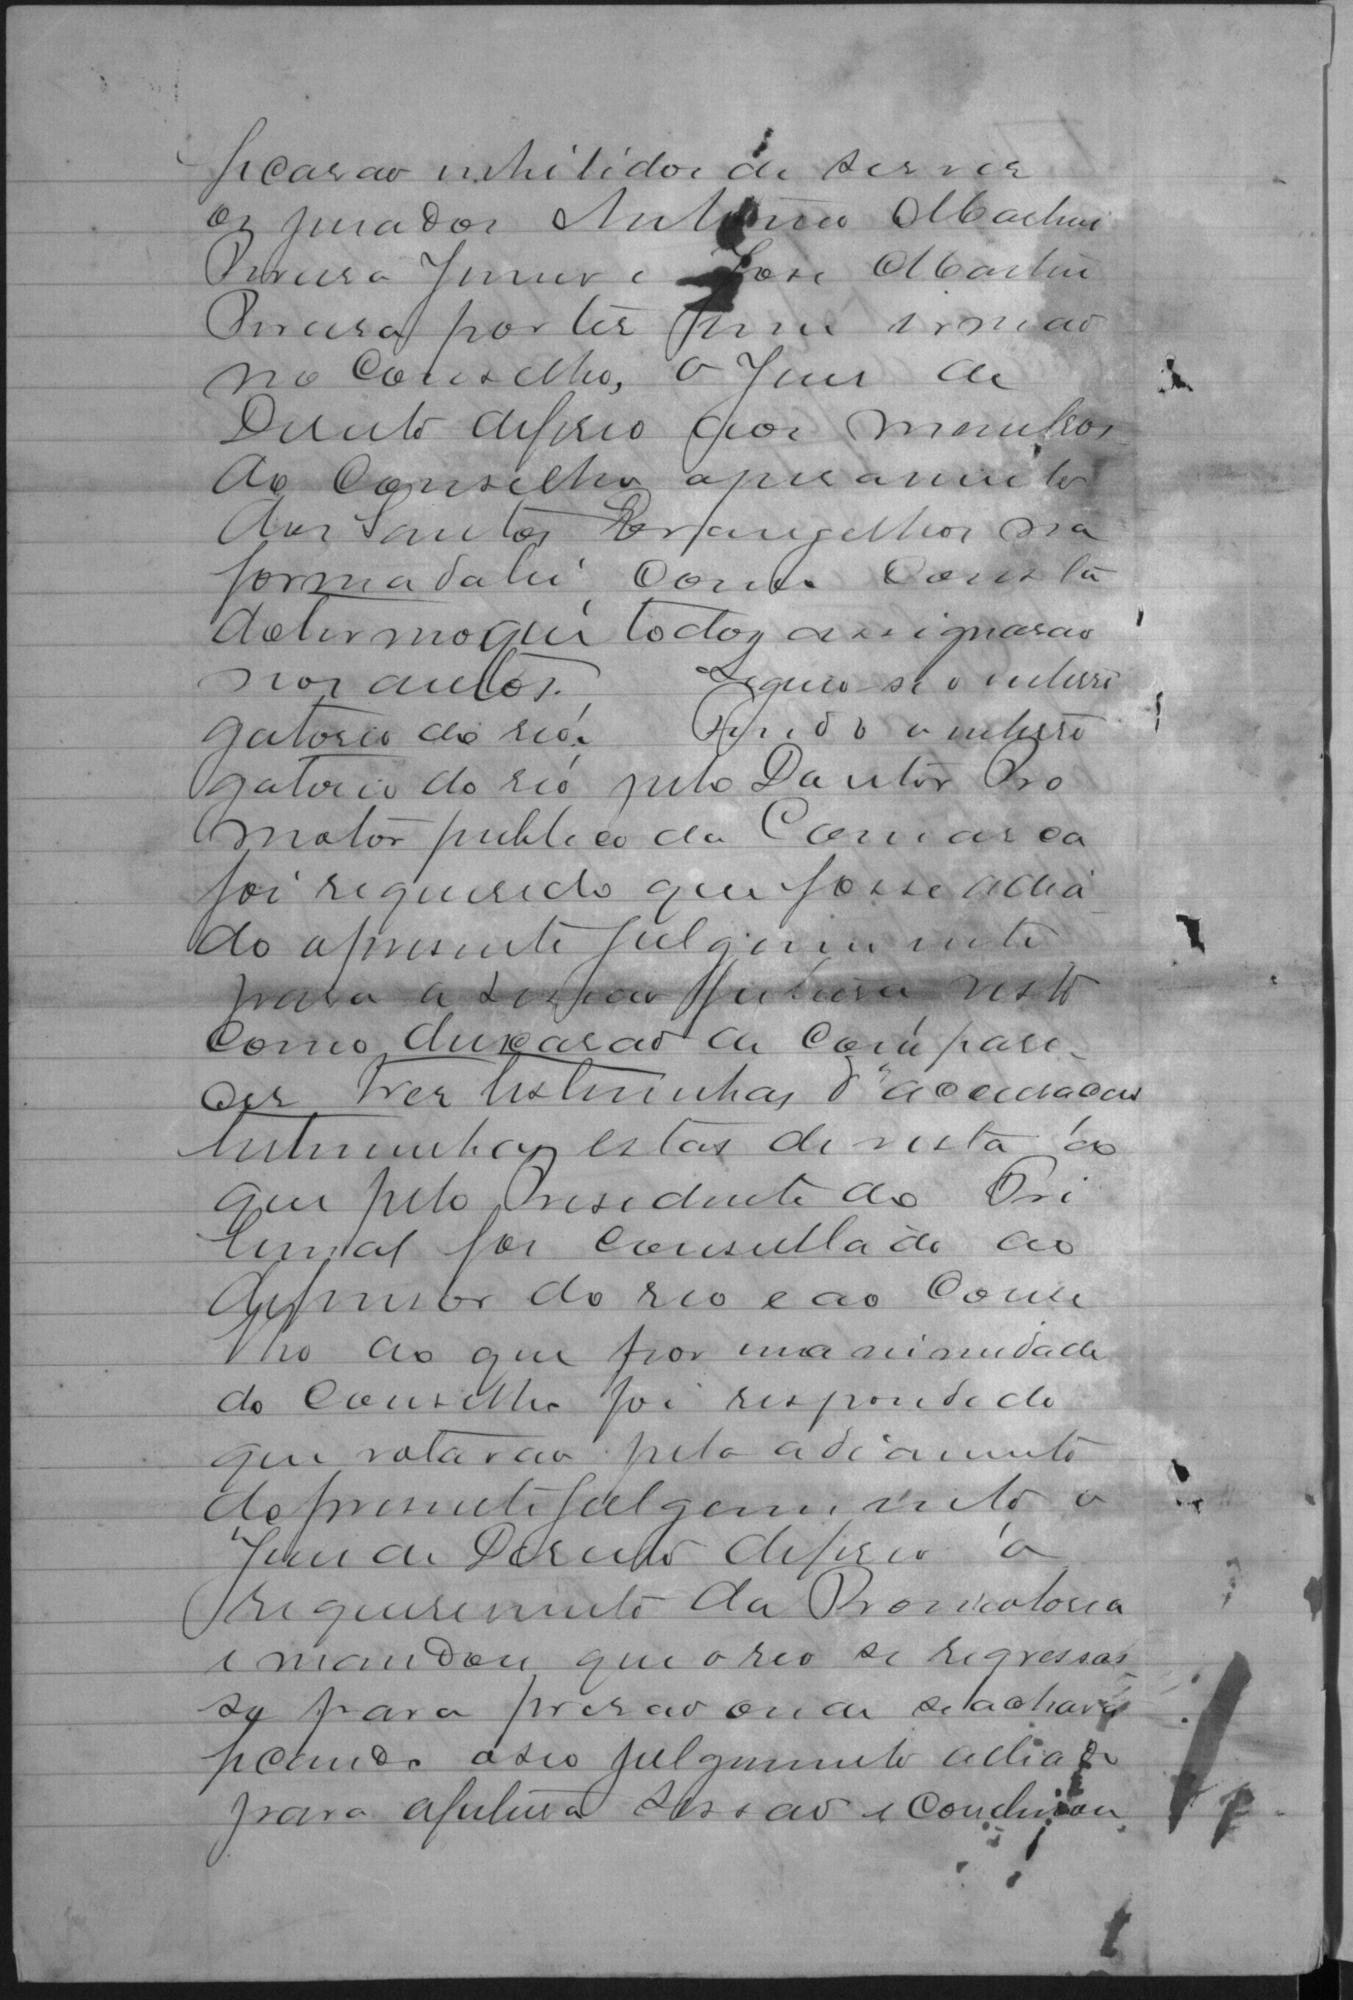 ficarão inhibidos de server
os jurados Antonio Martins
Pereira Junior e José Martins
Pereira por ter um irmão
no Conselho, O Juiz de
Direito deferio aos membros
do Conselho ojuramento
dos Santos Evangelhos na
forma da lei como consta
do termo que todos assignarão
nos autos. Seguio-se o interro
gatorio do réo. Findo o interro
gatorio do réo pelo Doutor Pro
motor publico da Comarca
foi requerido que fosse adia
do o presente julgamento
para a sessão futura visto
como deixarão de compare-
cer tres testimunhas
testimunhas estas de vista ao
que pelo Presidente do Tri
bunal foi consultado ao
defensor do reo e ao Conse
lho ao que por unanimidade
do Conselho foi respondido
que votavão pelo adiamento
do presente julgamento o
Juiz de Direito deferio o
requerimento da Promotoria
e mandou que o reo se regressas
se para prisão onde se achava
ficando o seo julgamento adiado
para a futura sessão e